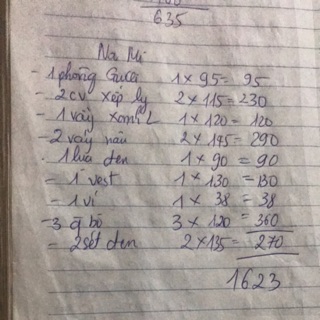 635
Na Mi
- 1 phông Gucci 1 x 95 = 95
- 2 cv xếp ly 2 x 115 = 230
- 1 váy xanh L 1 x 120 = 120
- 2 váy nâu 2 x 145 = 290
- 1 lụa đen 1 x 90 = 90
- 1 vest 1 x 130 = 130
- 1 ví 1 x 38 = 38
- 3 q bò 3 x 120 = 360
- 2 sét đen 2 x 135 = 270
1623